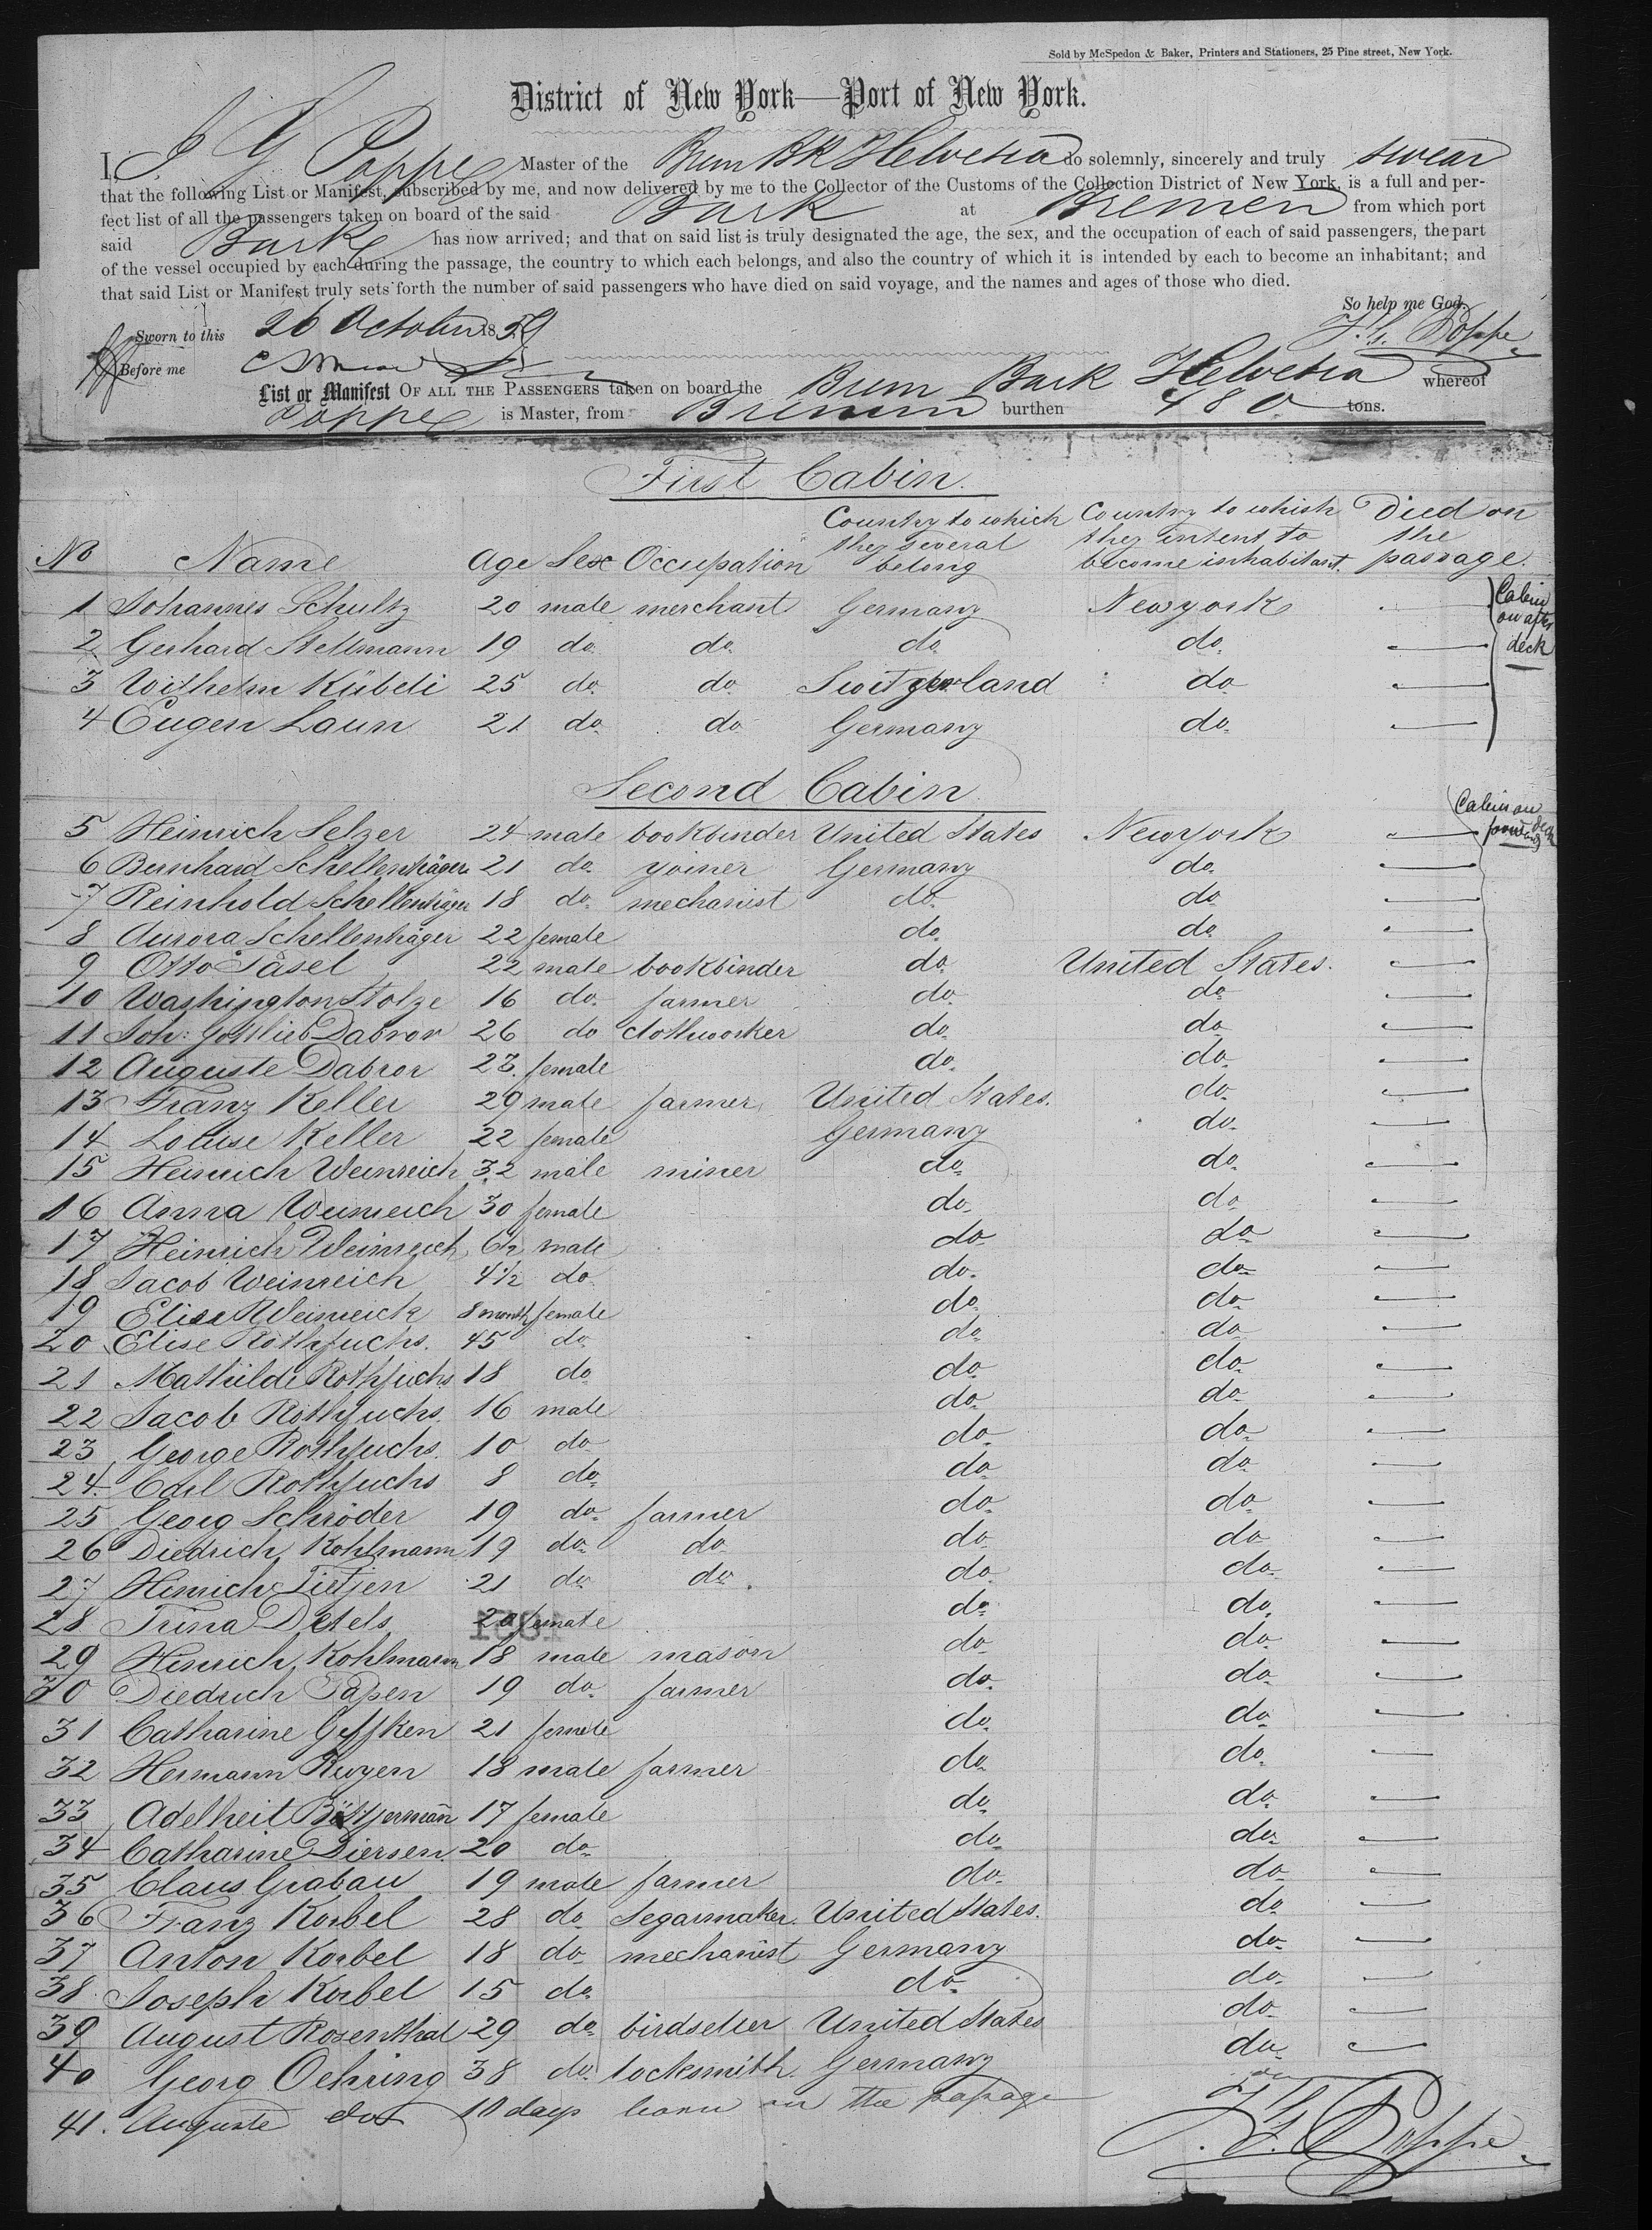 Sold by McSpedon & Baker, Printers and Stationers, 25 Pine street, New York.
District of New York—Port of New York.
I, J G Poppe Master of the Brem Bk Helvetia do solemnly, sincerely and truly swear
that the following List or Manifest, subscribed by me, and now delivered by me to the Collector of the Customs of the Collection District of New York, is a full and per-
fect list of all the passengers taken on board of the said Bark at Bremen from which port
said Barke has now arrived; and that on said list is truly designated the age, the sex, and the occupation of each of said passengers, the part
of the vessel occupied by each during the passage, the country to which each belongs, and also the country of which it is intended by each to become an inhabitant; and
that said List or Manifest truly sets forth the number of said passengers who have died on said voyage, and the names and ages of those who died.
So help me God.
Sworn to this 26 October 1859 Poppe
Before me
List or Manifest OF ALL THE PASSENGERS taken on board the Brem Bark Helvetia whereof
Poppe is Master, from Bremen burthen 480 tons.
First Cabin.
No Name Age Sex Occupation Country to which they several belong Country to whish they intent to become inhabitant. Died on the passage.
1 Johannes Schultz 20 male merchant Germany Newyork —
Cabin on after deck
2 Gerhard Stellmann 19 do. do. do. do. —
3 Wilhelm Kübeli 25 do. do Switzerland do —
4 Eugen Laun 21 do. do Germany do. —
Second Cabin
Cabin on deck
5 Heinrich Selzer 24 male bookbinder United States Newyork —
6 Bernhard Schellenträger 21 do. yoiner Germany do. —
7 Reinhold Schellenträger 18 do. mechanist do. do —
8 Aurora Schellenträger 22 female do. do —
9 Otto Päsel 22 male bookbinder do. United States. —
10 Washington Stolze 16 do. farmer do. do —
11 Joh: Gottlieb Dabror 26 do clothworker do. do —
12 Auguste Dabror 23. female do. do —
13 Franz Keller 29 male farmer United States. do. —
14 Louise Keller 22 female Germany do. —
15 Heinrich Weinreich 32 male miner do. do. —
16 Anna Weinreich 30 female do. do —
17 Heinrich Weinreich 6½ male do do —
18 Jacob Weinreich 4½ do. do. do —
19 Elise Weinreich 8 month female do. do. —
20 Elise Rothfuchs. 45 do. do do —
21 Mathilde Rothfuchs 18 do do. do. —
22 Jacob Rothfuchs. 16 male do. do. —
23 George Rothfuchs. 10 do do. do. —
24. Carl Rothfuchs 8 do. do. do —
25 Georg Schröder 19 do. farmer do. do. —
26 Diedrich Kohlmann 19 do. do do. do —
27 Hinrich Tietjen 21 do. do. do. do. —
28 Trina Detels 20 female do. do. —
29 Hinrich Kohlmann 18 male mason do do. —
30 Diedrich Papen 19 do. farmer do. do. —
31 Catharine Geffken 21 female do. do. —
32 Hermann Rugen 18 male farmer do. do. —
33 Adelheit Böttjermann 17 female do. do. —
34 Catharine Diersen. 20 do. do. do. —
35 Claus Grabau 19 male farmer do. do —
36 Franz Korbel 28 do. Segarmaker. United States. do. —
37 Anton Korbel 18 do. mechanist Germany do. —
38 Joseph Korbel 15 do. do. do. —
39 August Rosenthal 29 do. birdseller United States do —
40 Georg Oehring 38 do. locksmith. Germany do. —
41. Auguste do 10 days born on the passage do
Poppe